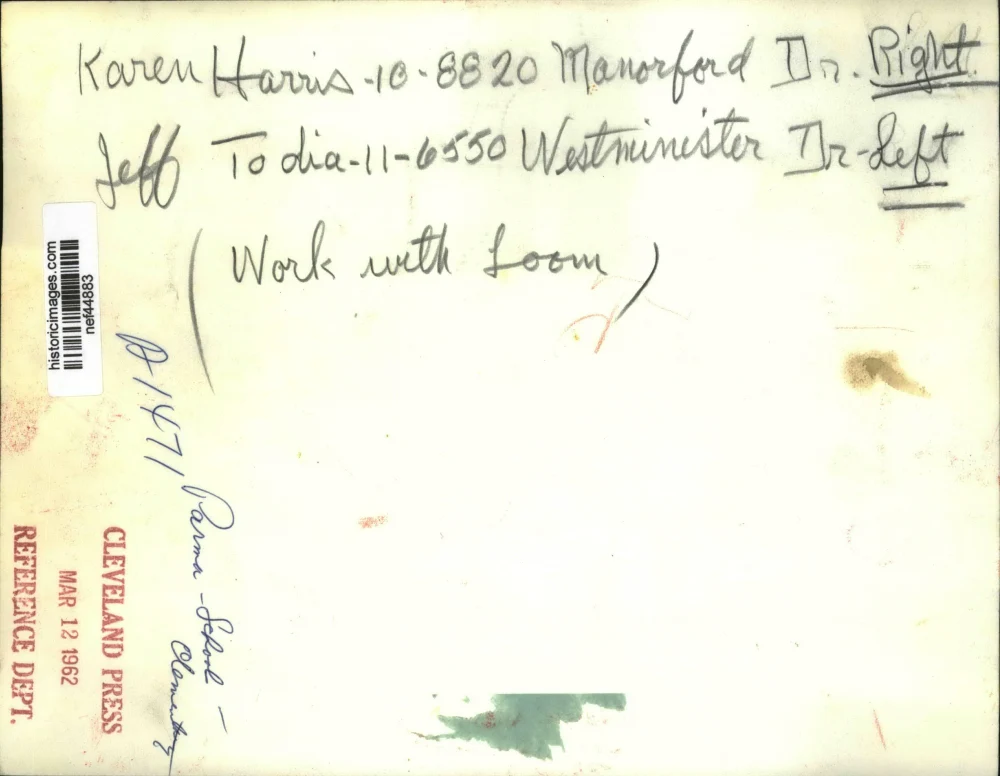 Karen Harris-10-8820 Manorford Dr. Right
Jeff Todia-11-6550 Westminister Dr-Left
(Work with Loom)
historicimages.com
nef44883
A1471
Parma-School-
Elementary
CLEVELAND PRESS
MAR 12 1962
REFERENCE DEPT.